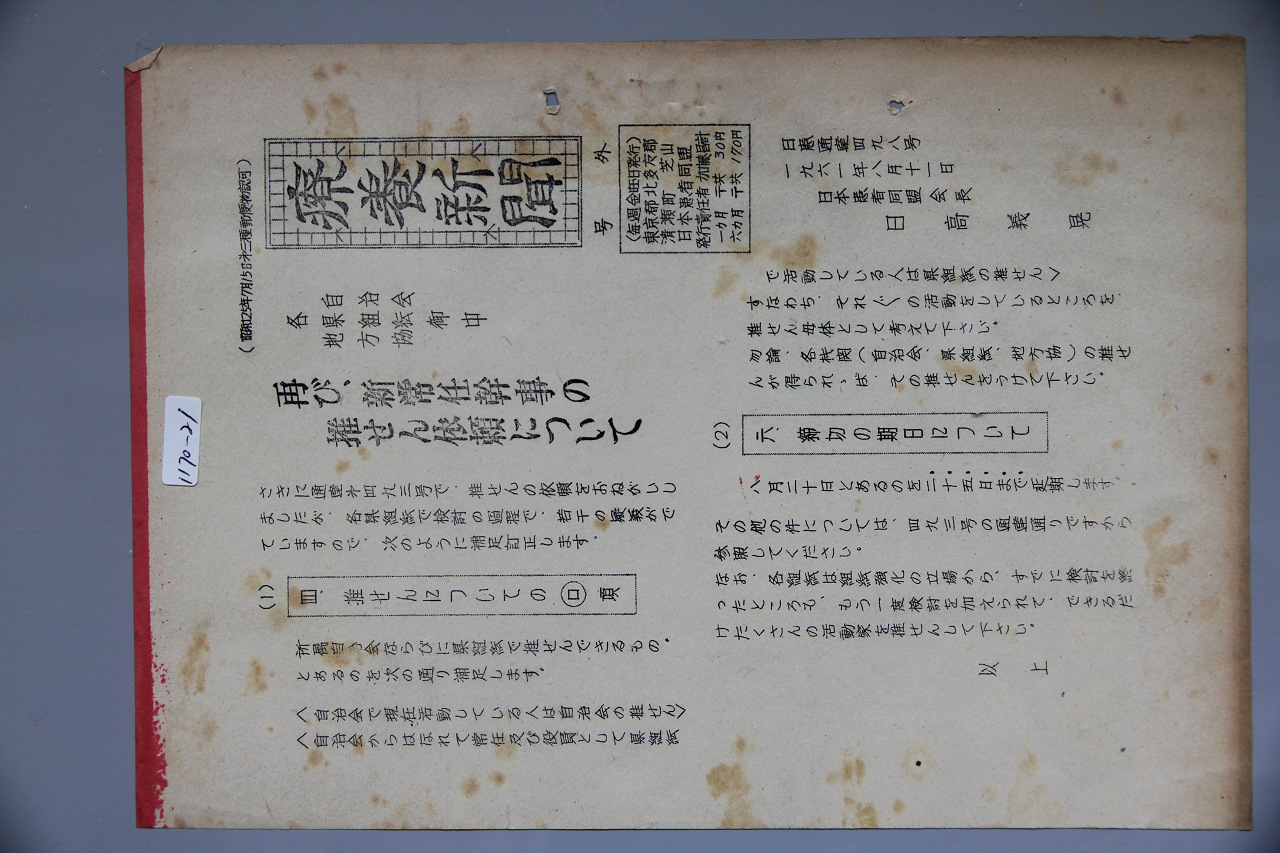 (昭和25年7月15日第三種郵便物認可)
療養新聞
号外
(毎週金曜日発行)
東京都北多摩郡
清瀬町 芝山
日本患者同盟
発行責任者 加藤昌計
一カ月 〒共 30円
六カ月 〒共 170円
日患通達四九八号
一九六一年八月十一日
日本患者同盟 会長
日高義晃
各 自治会
県組織
地方協
御中
再び、新常任幹事の
推せん依頼について
さきに通達才四九三号で、推せんの依頼をおねがいし
ましたが、各県組織で検討の過程で、若干の疑義がで
ていますので、次のように補足訂正します。
(1)
四、推せんについての㋺項
所属自治会ならびに県組織で推せんできるもの。
とあるのを次の通り補足します。
〈自治会で現在活動している人は自治会の推せん〉
〈自治会からはなれて常任及び役員として県組織
で活動している人は県組織の推せん〉
すなわち、それ〴〵の活動をしているところを、
推せん母体として考えて下さい。
勿論、各機関(自治会、県組織、地方協)の推せ
んが得られゝば、その推せんをうけて下さい。
(2)
六、締切の期日について
八月二十日とあるのを二十五日まで延期します。
その他の件については、四九三号の通達通りですから
参照してください。
なお、各組織は組織強化の立場から、すでに検討を終
ったところも、もう一度検討を加えられて、できるだ
けたくさんの活動家を推せんして下さい。
以上
1170-21